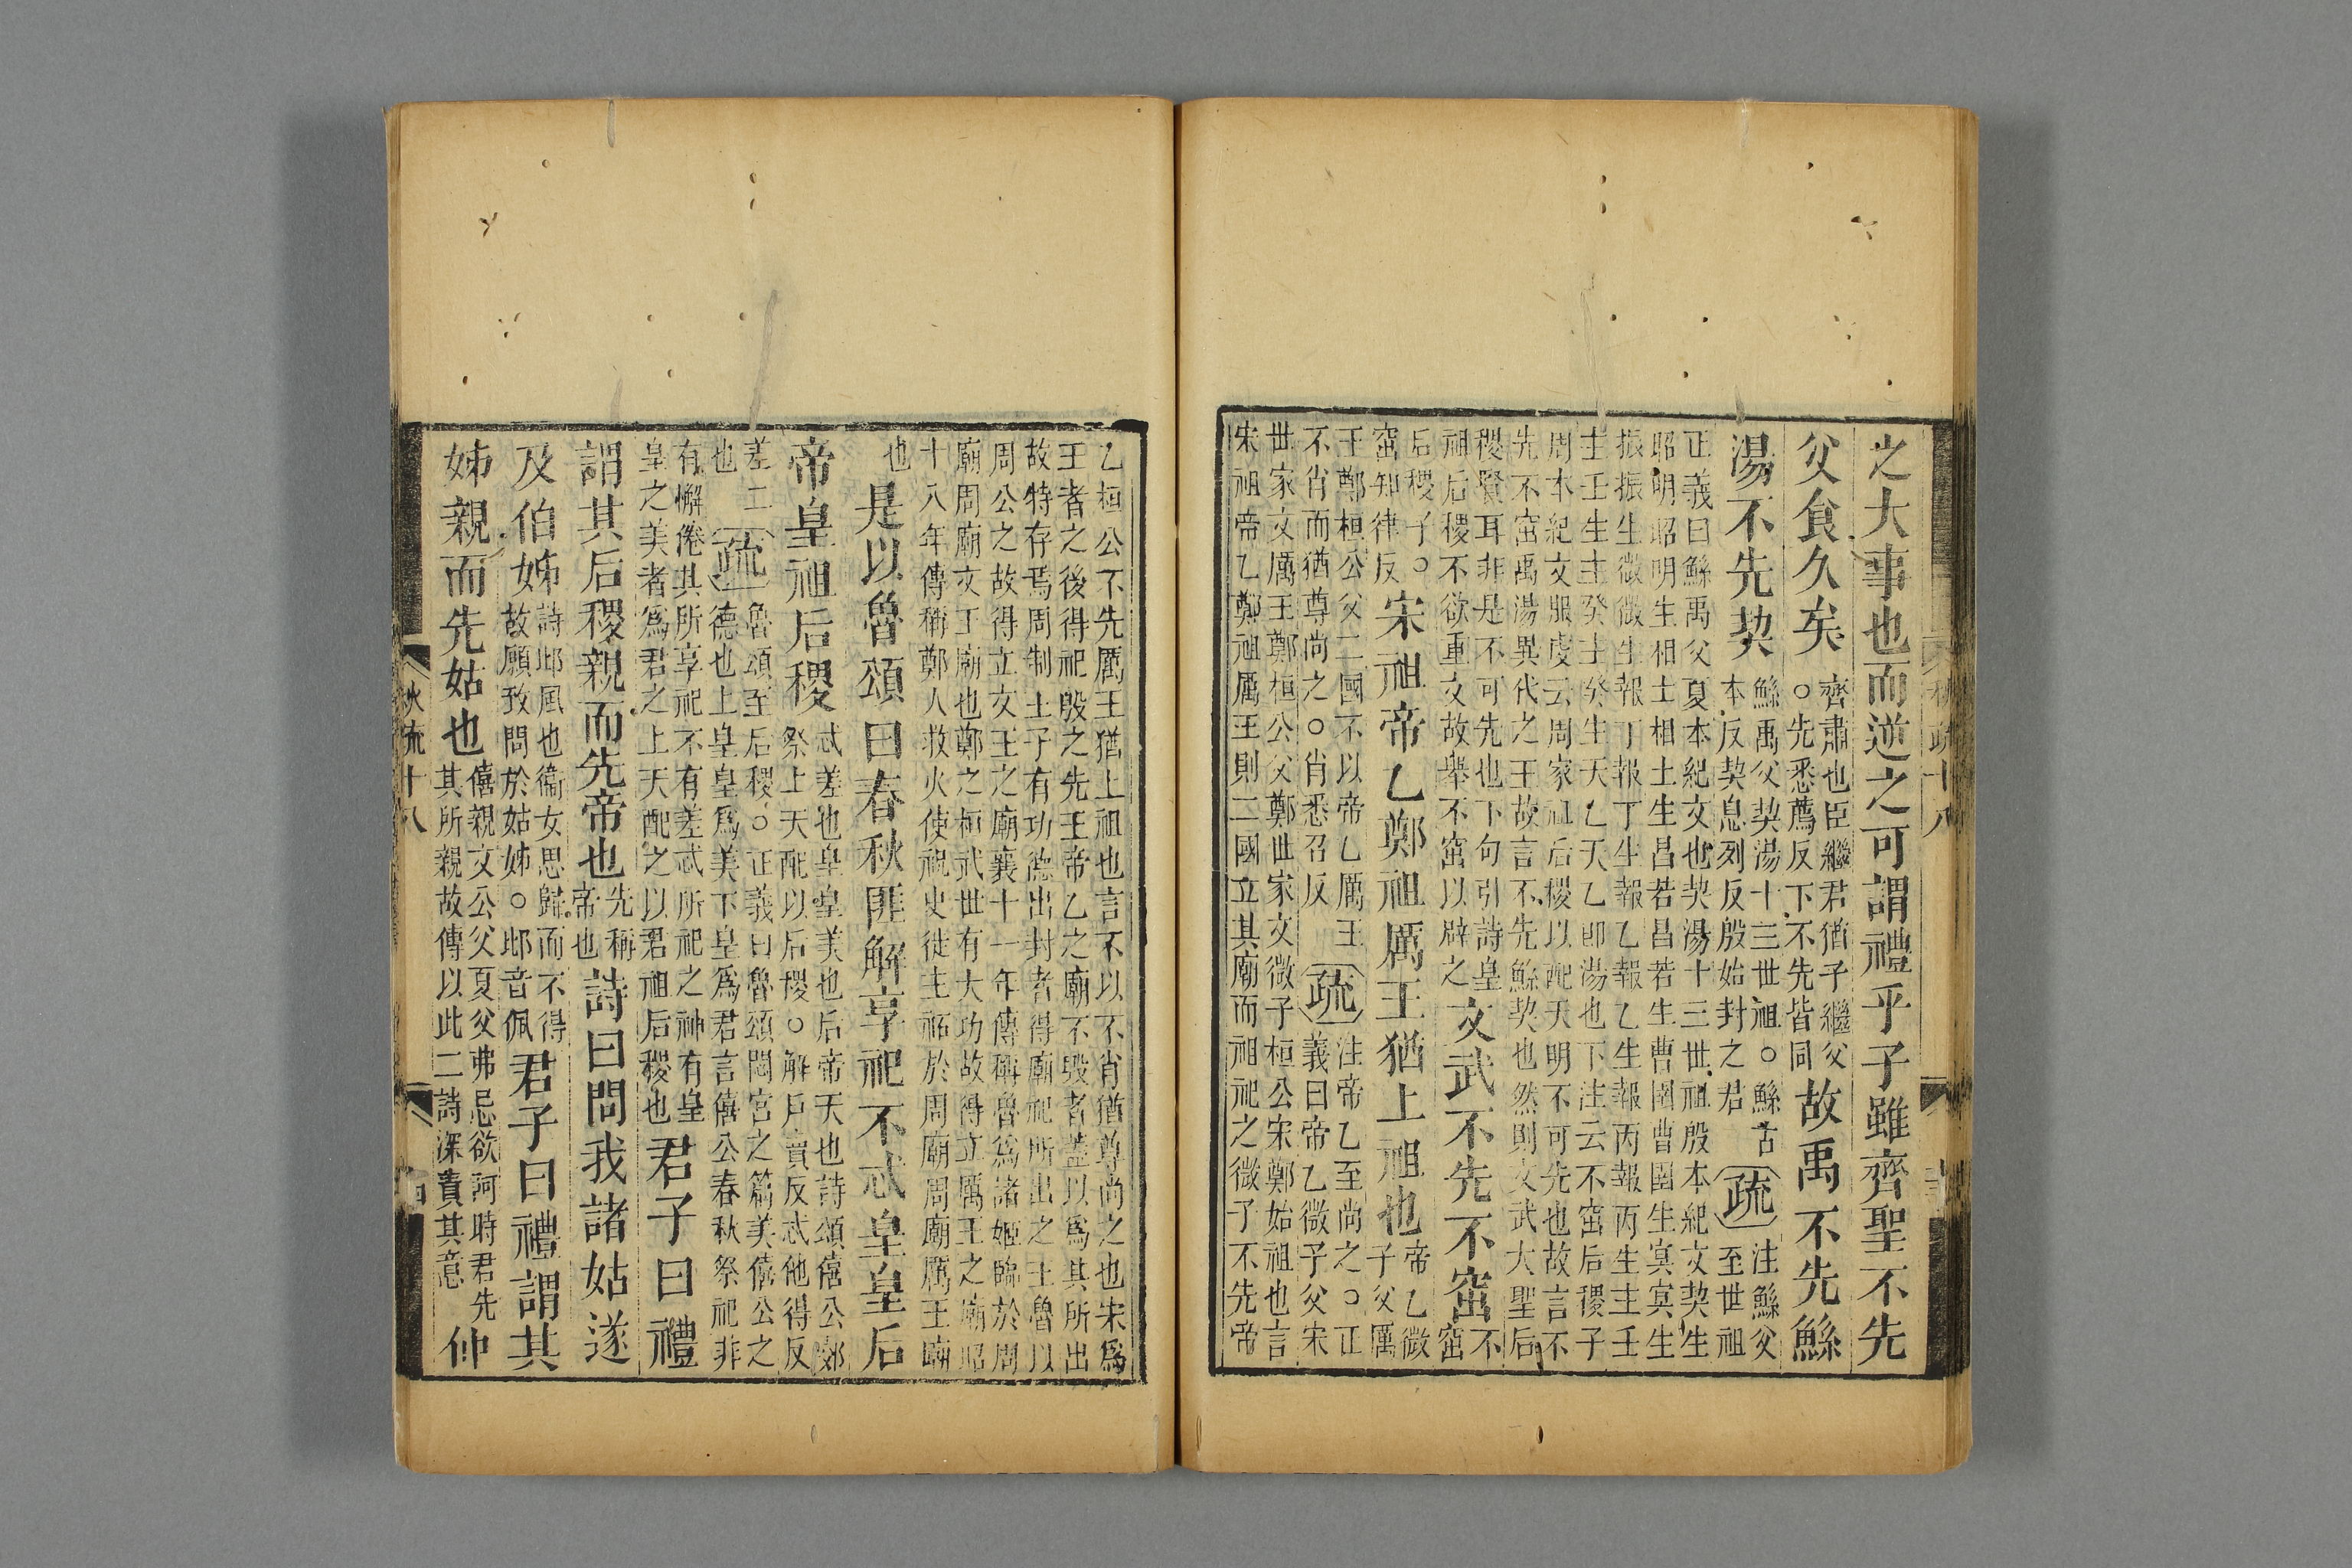 之大事也而逆之可謂禮乎子雖齊聖不先
父食久矣齊肅也臣繼君猶子繼父○先悉薦反下不先皆同故禹不先鯀
湯不先契鯀禹父契湯十三世祖○鯀古本反契息列反殷始封之君疏注鯀父至世祖
正義曰鯀禹父夏本紀文也契湯十三世祖殷本紀文契生
昭明昭明生相土相土生昌若昌若生曹圉曹圉生冥冥生
振振生微微生報丁報丁生報乙報乙生報丙報丙生主壬
主壬生主癸主癸生天乙天乙卽湯也下注云不窋后稷子
周本紀文服虔云周家祖后稷以配天明不可先也故言不
先不窋禹湯異代之王故言不先鯀契也然則文武大聖后
稷賢耳非是不可先也下句引詩皇祖后稷不欲重文故舉不窋以辟之文武不先不窋不窋
后稷子○窋知律反宋祖帝乙鄭祖厲王猶上祖也帝乙微子父厲
王鄭桓公父二國不以帝乙厲王不肖而猶尊尚之○肖悉召反疏注帝乙至尚之○正義曰帝乙微子父宋
世家文厲王鄭桓公父鄭世家文微子桓公宋鄭始祖也言
宋祖帝乙鄭祖厲王則二國立其廟而祖祀之微子不先帝
乙桓公不先厲王猶上祖也言不以不肖猶尊尚之也宋爲
王者之後得祀殷之先王帝乙之廟不毀者蓋以爲其所出
故特存焉周制王子有功德出封者得廟祀所出之王魯以
周公之故得立文王之廟襄十一年傳稱魯爲諸姬臨於周
廟周廟文王廟也鄭之桓武世有大功故得立厲王之廟昭
十八年傳稱鄭人救火使祝史徙主祏於周廟周廟厲王廟
也是以魯頌曰春秋匪解享祀不忒皇皇后
帝皇祖后稷忒差也皇皇美也后帝天也詩頌僖公郊祭上天配以后稷○解戶賣反忒他得反
差二也疏魯頌至后稷○正義曰魯頌閟宮之篇美僖公之德也上皇皇爲美下皇爲君言僖公春秋祭祀非
有懈倦其所享祀不有差忒所祀之神有皇皇之美者爲君之上天配之以君祖后稷也君子曰禮
謂其后稷親而先帝也先稱帝也詩曰問我諸姑遂
及伯姊詩邶風也衞女思歸而不得故願致問於姑姊○邶音佩君子曰禮謂其
姊親而先姑也僖親文公父夏父弗忌欲訶時君先其所親故傳以此二詩深責其意仲
秋疏十八